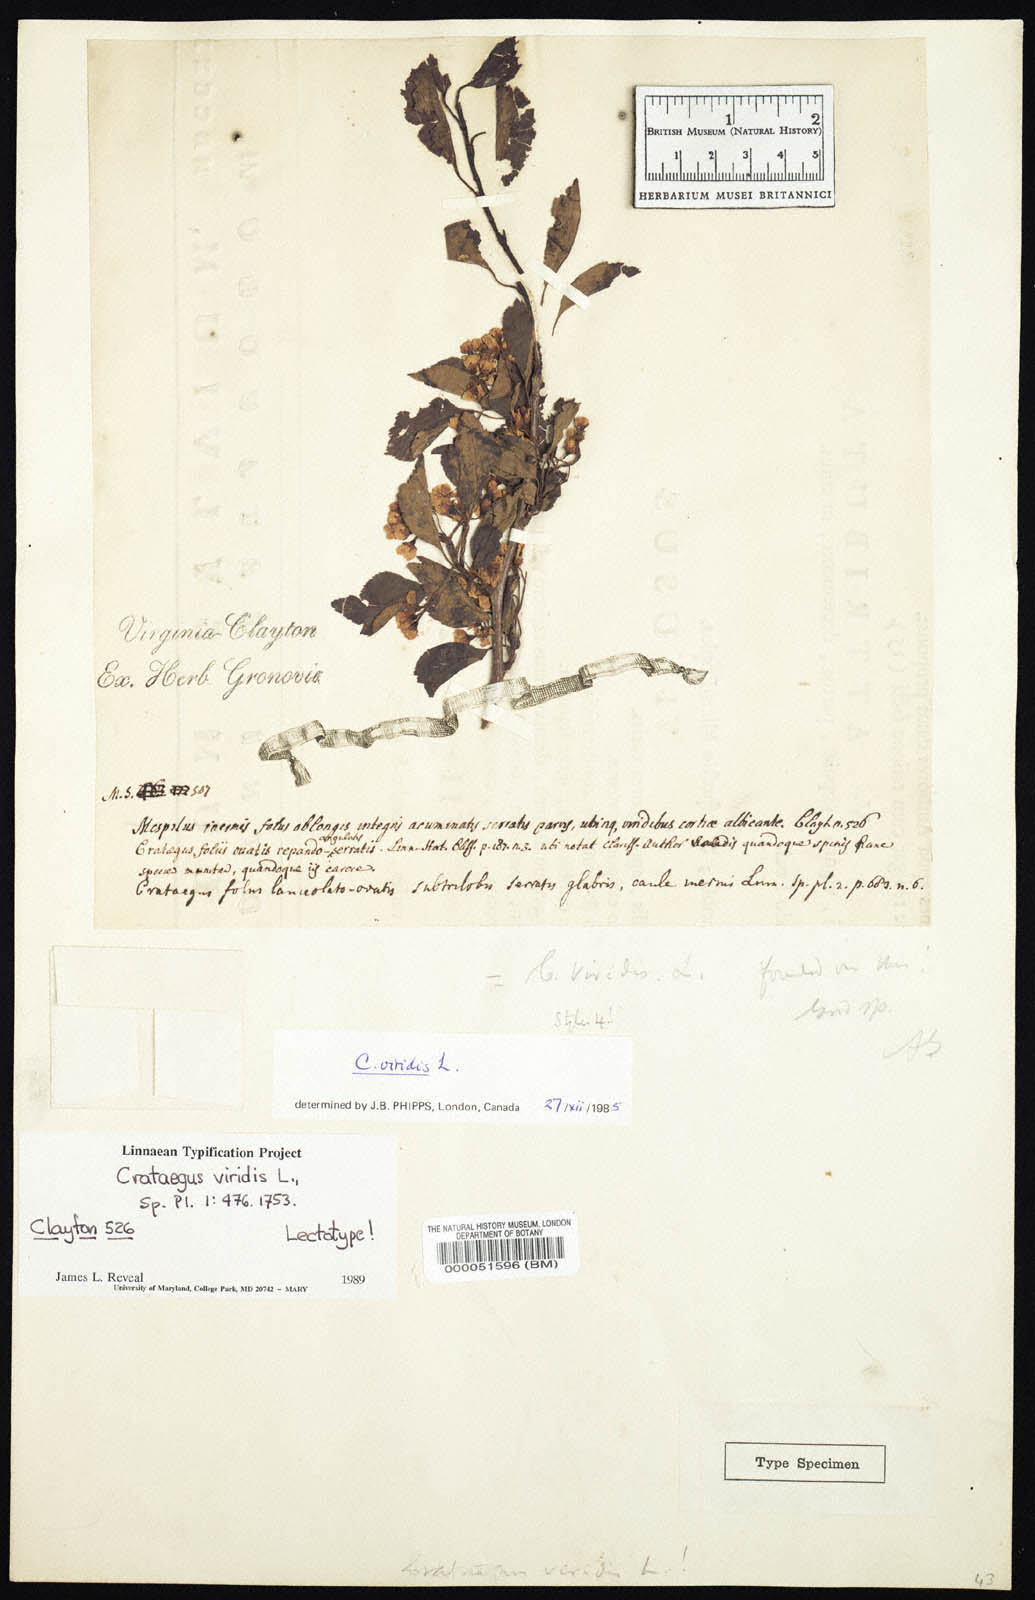 1 2
BRITISH MUSEUM (NATURAL HISTORY)
1 2 3 4 5
HERBARIUM MUSEI BRITANNICI
Virginia-Clayton
Ex. Herb Gronovii
M.S. 507
Mespilus inermis foliis oblongis integris acuminatis serratis parvis, utrinq, viridibus cortice albicante. Clayt. n. 526
angulosis
Crataegus foliis ovatis repando-serratis. Linn. Hort. Cliff. p. 187. n. 3. ubi notat clariss. Author quandoque spinis hanc
speciem munitam, quandoque iis carere.
Crataegus foliis lanceolato-ovatis subtrilobis serratis glabris, caule inermi Linn. Sp. pl. 2. p. 683. n. 6.
= C. viridis. L. founded on this!
Good sp.
Styles 4!
AG
C. viridis L.
determined by J.B. PHIPPS, London, Canada 27/xii/1985
Linnaean Typification Project
Crataegus viridis L.,
Sp. Pl. 1: 476. 1753.
Clayton 526 Lectotype!
James L. Reveal 1989
University of Maryland, College Park, MD 20742 – MARY
THE NATURAL HISTORY MUSEUM, LONDON
DEPARTMENT OF BOTANY
000051596 (BM)
Type Specimen
Crataegus viridis L.!
43